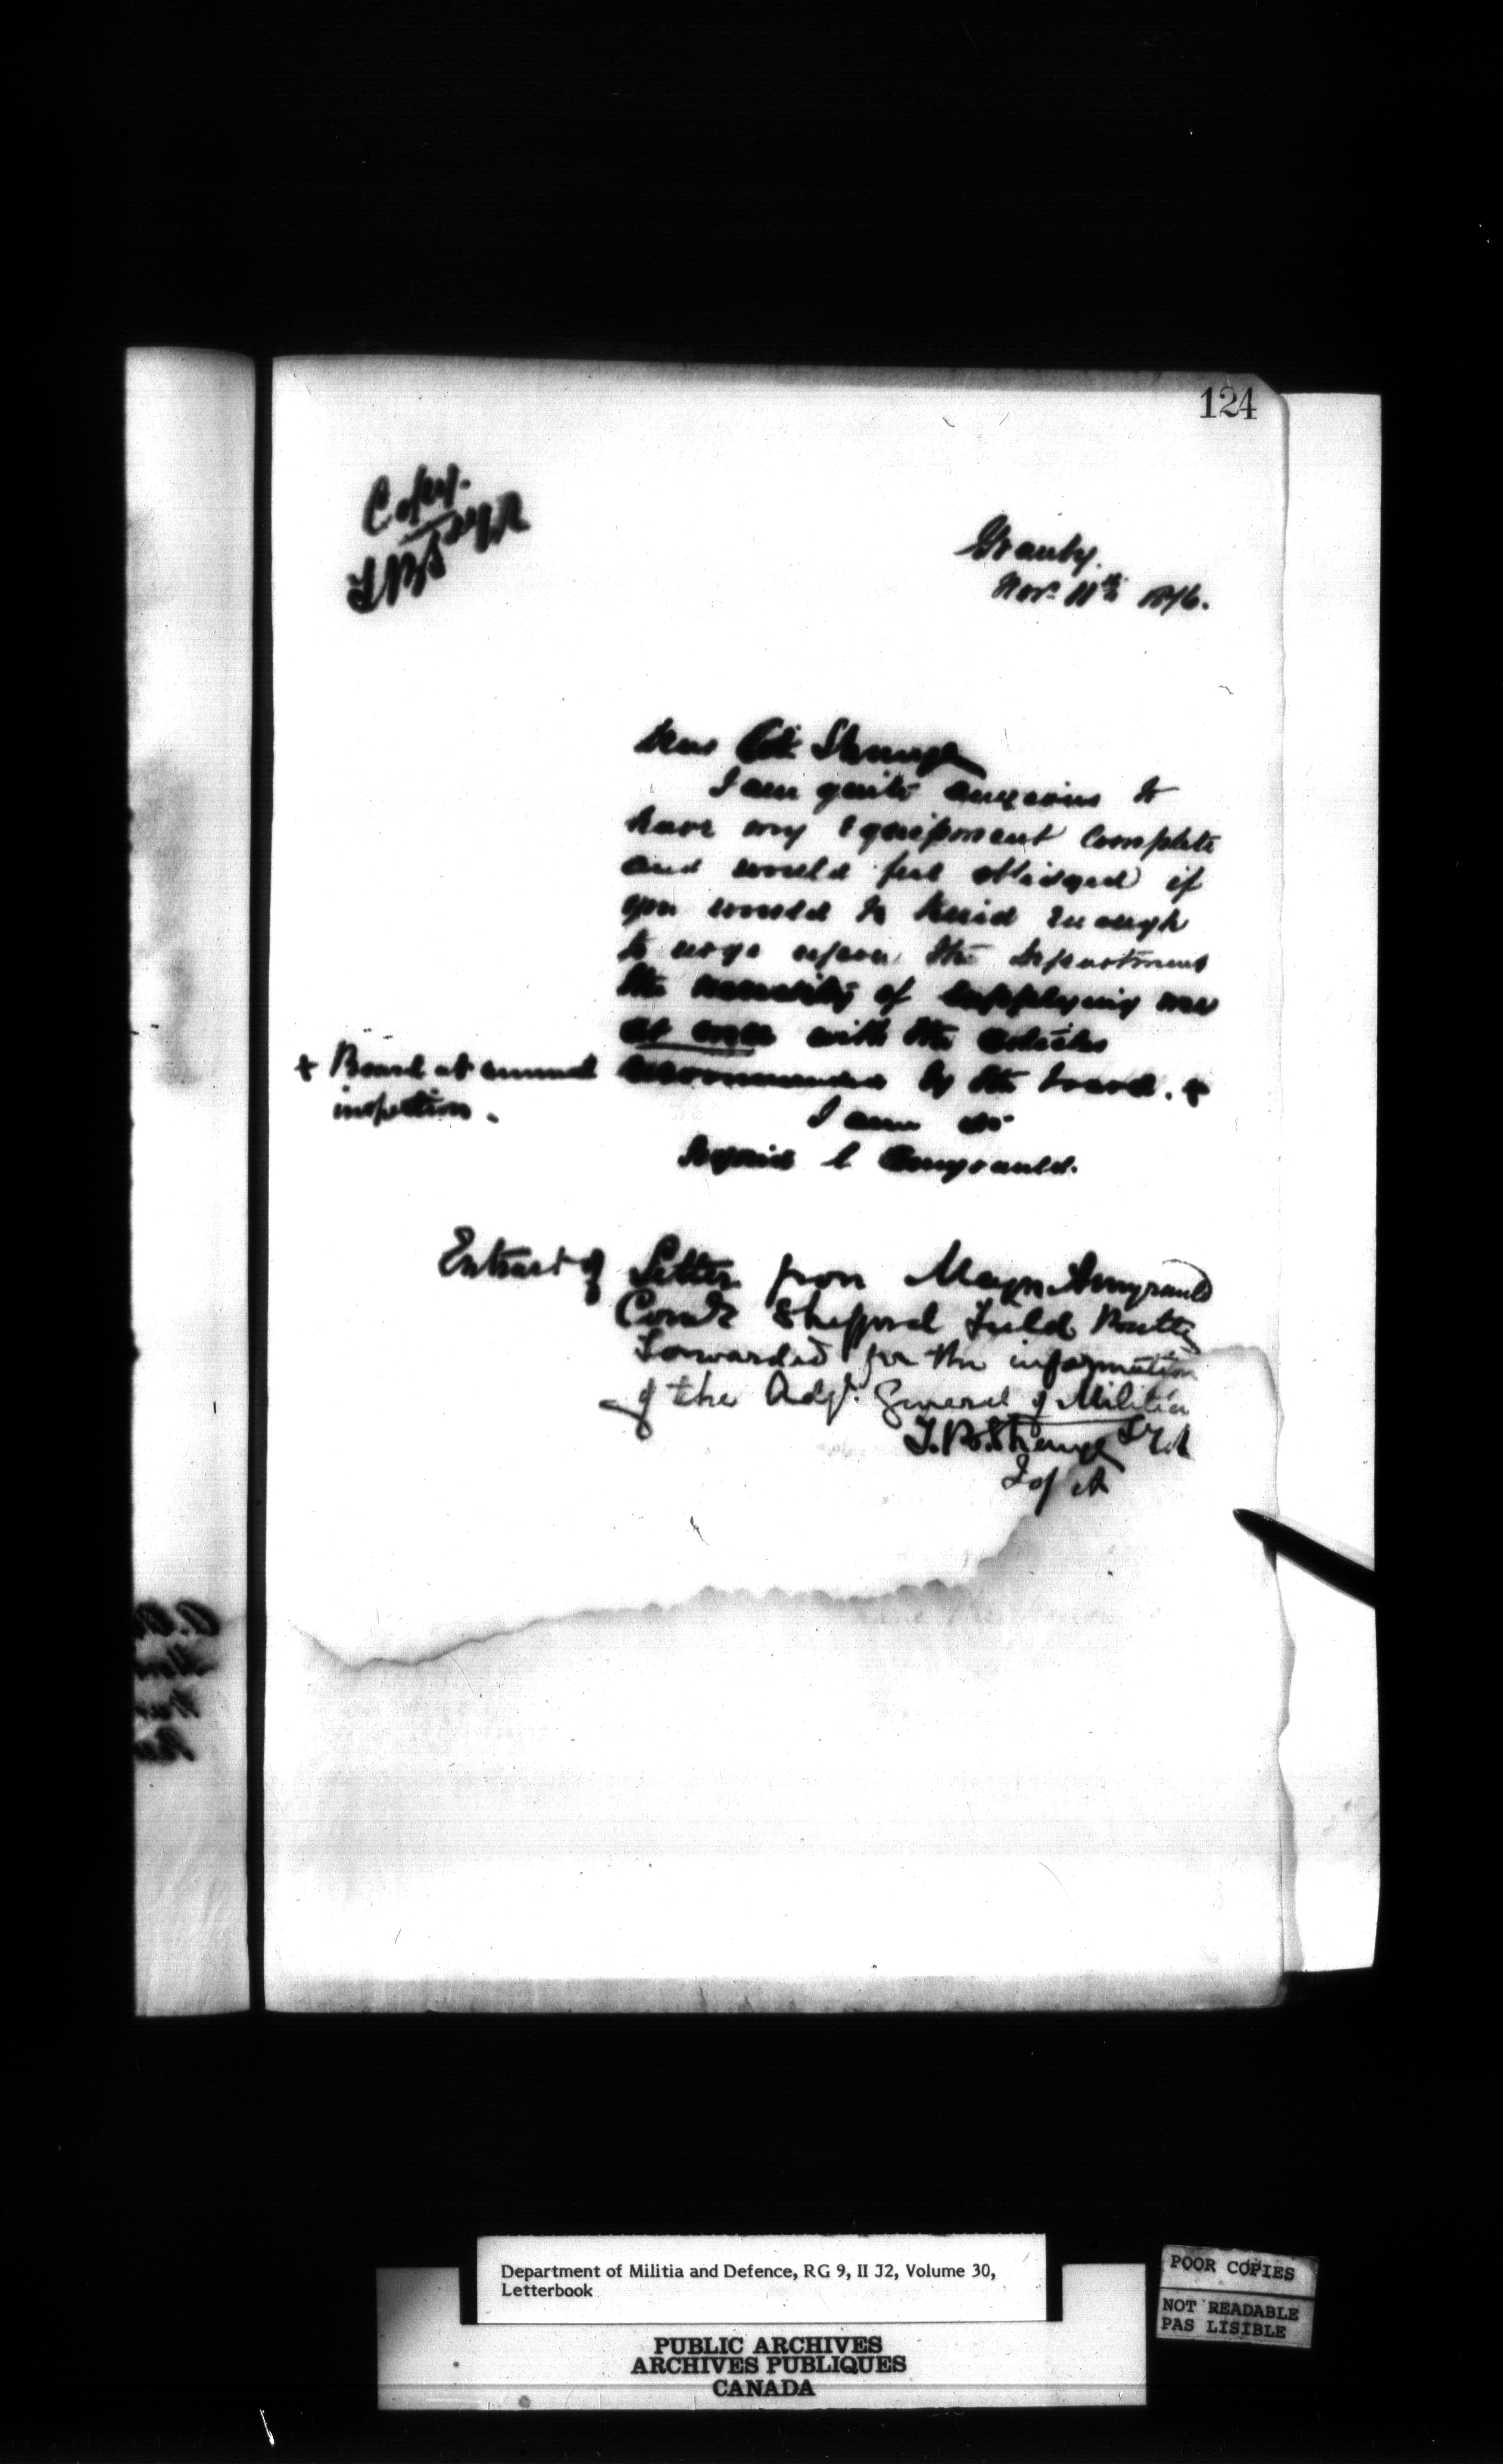 124
Copy.
TBS
Granby.
Nov. 11th 1876.
Dear Col Strange
I am quite anxious to
have my equipment complete
and would feel obliged if
you would be kind enough
to urge upon the Department
the necessity of supplying me
at once with the articles
recommended by the board. +
+ Board at annual
inspection.
I am &c
Signed Amyrauld.
Extract of Letter from Major Amyrauld
Comdg Shefford Field Battery
Forwarded for the information
of the Adjt. General of Militia
T.B. Strange
I of A
Department of Militia and Defence, RG 9, II J2, Volume 30,
Letterbook
PUBLIC ARCHIVES
ARCHIVES PUBLIQUES
CANADA
POOR COPIES
NOT READABLE
PAS LISIBLE